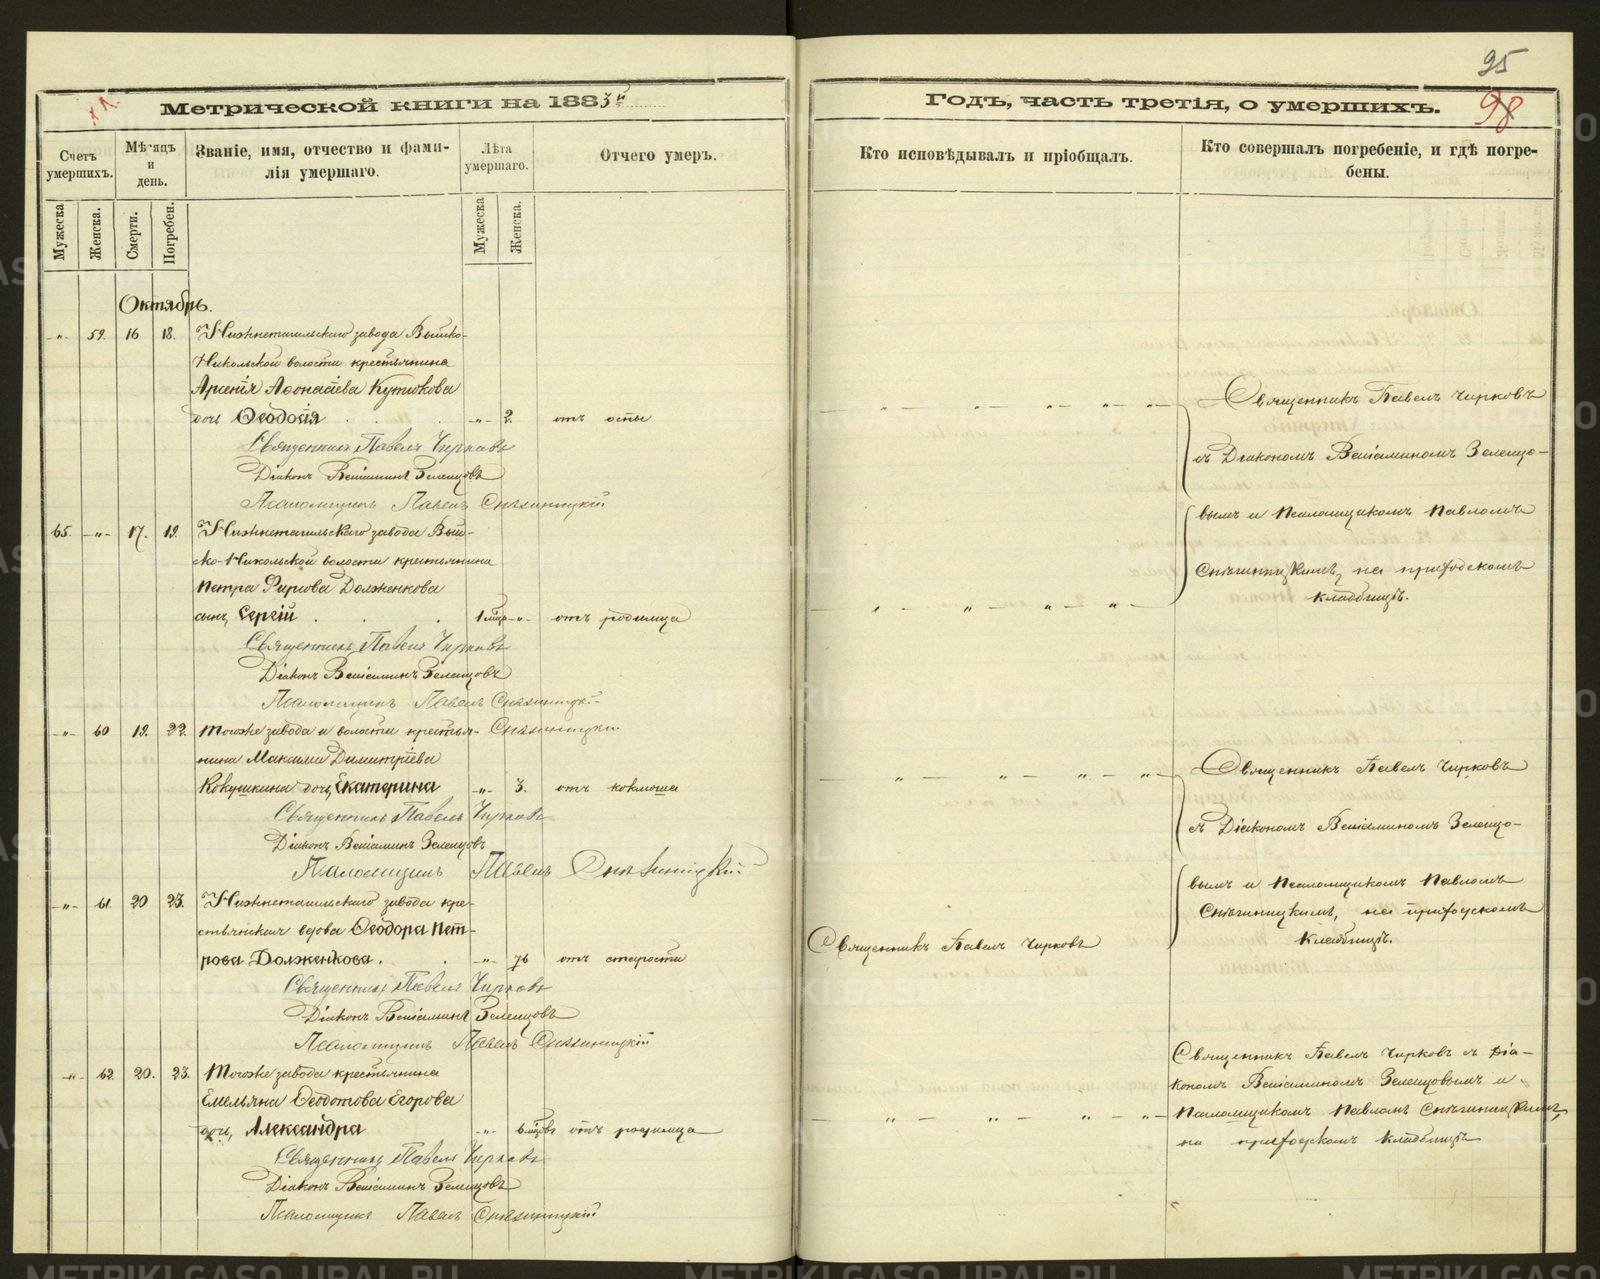 95
98
Метрической книги на 1883й
Годъ, часть третія, о умершихъ.
Счетъ умершихъ.
Мѣсяцъ и день.
Званіе, имя, отчество и фами-
лія умершаго.
Лѣта умершаго.
Отчего умеръ.
Кто исповѣдывалъ и пріобщалъ.
Кто совершалъ погребеніе, и гдѣ погре-
бены.
Мужеска
Женска.
Смерти.
Погребен.
Мужеска
Женска.
Октябрь.
-„- 59. 16 18. Нижнетагильскаго завода Выйско-
Никольской волости крестьянина
Арсенія Аѳонасіева Кутюкова
дочь Ѳеодосія -„- 2. отъ оспы
Священникъ Павелъ Чирковъ
Діаконъ Веніаминъ Зеленцовъ
Псаломщикъ Павелъ Снѣгиницкій
Священникъ Павелъ Чирковъ
съ Діакономъ Веніаминомъ Зеленцо-
вымъ и Псаломщикомъ Павломъ
Снѣгиницкимъ, на приходскомъ
кладбищѣ.
65. -„- 17. 19. Нижнетагильскаго завода Вый-
ско-Никольской волости крестьянина
Петра Фирсова Долженкова
сынъ, Сергій 1 мѣсц. -„- отъ родимца
Священникъ Павелъ Чирковъ
Діаконъ Веніаминъ Зеленцовъ
Псаломщикъ Павелъ Снѣгиницкій
-„- 60 19. 22. Тогоже завода и волости крестья- Снѣгиницкій
нина Максима Димитріева
Кокушкина дочь, Екатерина -„- 3. отъ коклюша
Священникъ Павелъ Чирковъ
Діаконъ Веніаминъ Зеленцовъ
Псаломщикъ Павелъ Снѣгиницкій
Священникъ Павелъ Чирковъ
съ Діакономъ Веніаминомъ Зеленцо-
вымъ и Псаломщикомъ Павломъ
Снѣгиницкимъ, на приходскомъ
кладбищѣ.
-„- 61. 20 23. Нижнетагильскаго завода кре-
стьянская вдова Ѳеодора Пет-
рова Долженкова. -„- 76 отъ старости
Священникъ Павелъ Чирковъ
Священникъ Павелъ Чирковъ
Діаконъ Веніаминъ Зеленцовъ
Псаломщикъ Павелъ Снѣгиницкій
-„- 62. 20. 23. Тогоже завода крестьянина
Емельяна Ѳеодотова Егорова
дочь, Александра -„- 6 мѣсцовъ отъ родимца
Священникъ Павелъ Чирковъ
Діаконъ Веніаминъ Зеленцовъ
Псаломщикъ Павелъ Снѣгиницкій
Священникъ Павелъ Чирковъ съ Діа-
кономъ Веніаминомъ Зеленцовымъ и
Псаломщикомъ Павломъ Снѣгиницкимъ,
на приходскомъ кладбищѣ